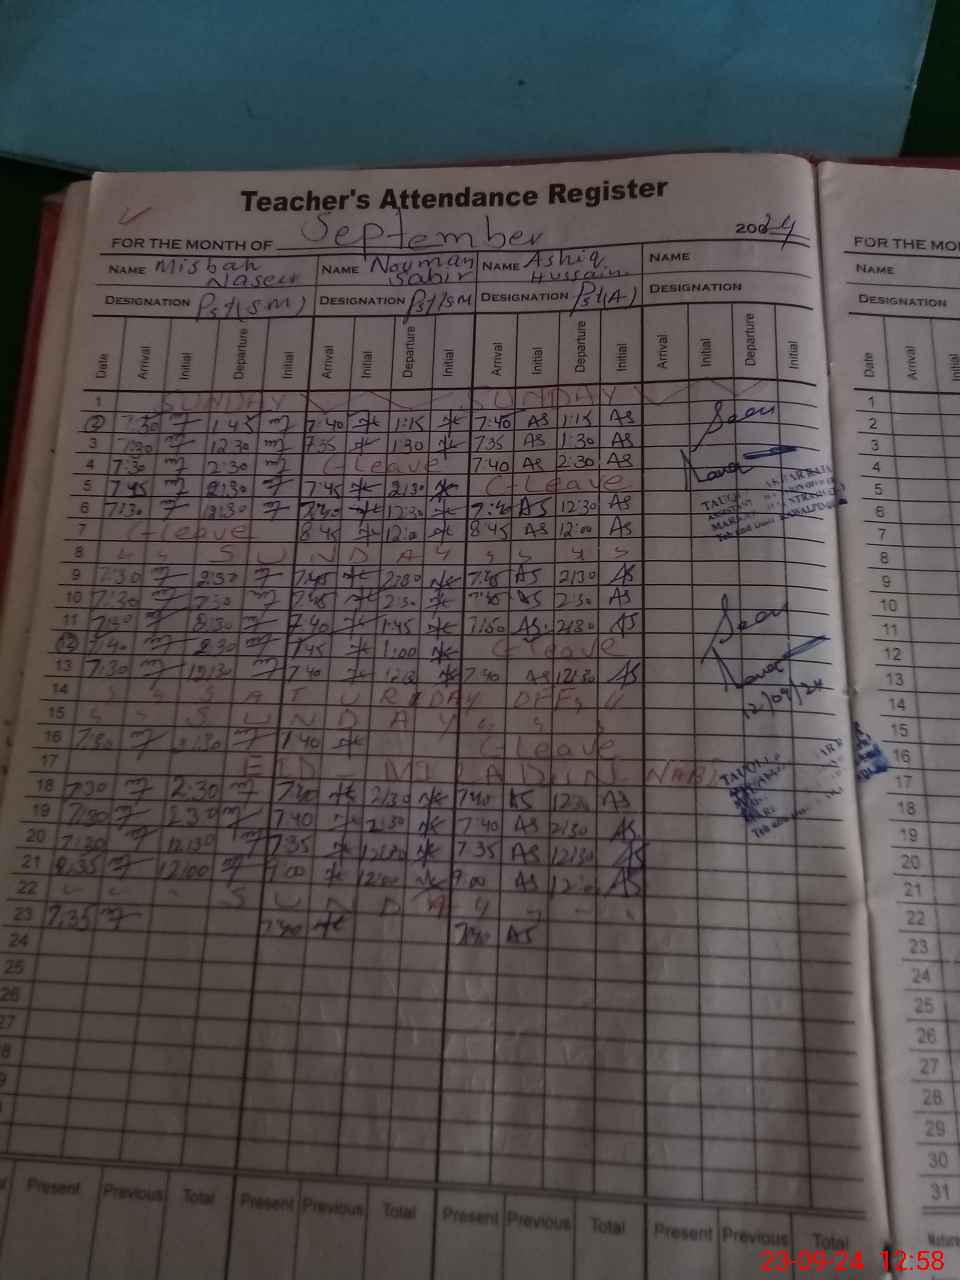 Teacher's Attendance Register
FOR THE MONTH OF September 20024
NAME Misbah Naseer NAME Nouman Sabir NAME Ashiq Hussain NAME
DESIGNATION Pst(SM) DESIGNATION Pst(SM DESIGNATION Pst(A) DESIGNATION
Date Arrival Initial Departure Initial Arrival Initial Departure Initial Arrival Initial Departure Initial Arrival Initial Departure Initial
1 SUNDAY SUNDAY
2 7:30 1:45 7:40 1:15 7:40 AS 1:15 AS Seen
3 7:30 12:30 7:35 1:30 7:35 AS 1:30 AS
4 7:30 2:30 C-Leave 7:40 AS 2:30 AS
5 7:45 2:30 7:45 2:30 C-Leave
6 7:30 12:30 7:40 12:30 7:40 AS 12:30 AS
7 C-Leave 8:45 12:00 8:45 AS 12:00 AS
8 SUNDAY
9 7:30 2:30 7:45 2:30 7:45 AS 2:30 AS
10 7:30 2:30 7:45 2:30 7:45 AS 2:30 AS
11 7:30 2:30 7:40 1:45 7:50 AS 2:30 AS Seen
12 7:40 2:30 7:45 1:00 C-Leave
13 7:30 12:30 7:40 7:40 AS 12:30 AS
12/09/24
14 SATURDAY OFF
15 SUNDAY
16 7:30 2:30 7:40 C-Leave
17 EID-MILADUN NABI
18 7:30 2:30 7:40 2:30 7:40 AS AS
19 7:30 2:30 7:40 2:30 7:40 AS 2:30 AS
20 7:30 12:30 7:35 12:30 7:35 AS 12:30 AS
21 12:00 9:00 12:00 9:00 AS 12:00 AS
22 SUNDAY
23 7:35 7:40 7:40 AS
24
25
26
27
Present Previous Total Present Previous Total Present Previous Total Present Previous Total
FOR THE MO
NAME
DESIGNATION
Date Arrival
1
2
3
4
5
6
7
8
9
10
11
12
13
14
15
16
17
18
19
20
21
22
23
24
25
26
27
28
29
30
31
23-09-24 12:58